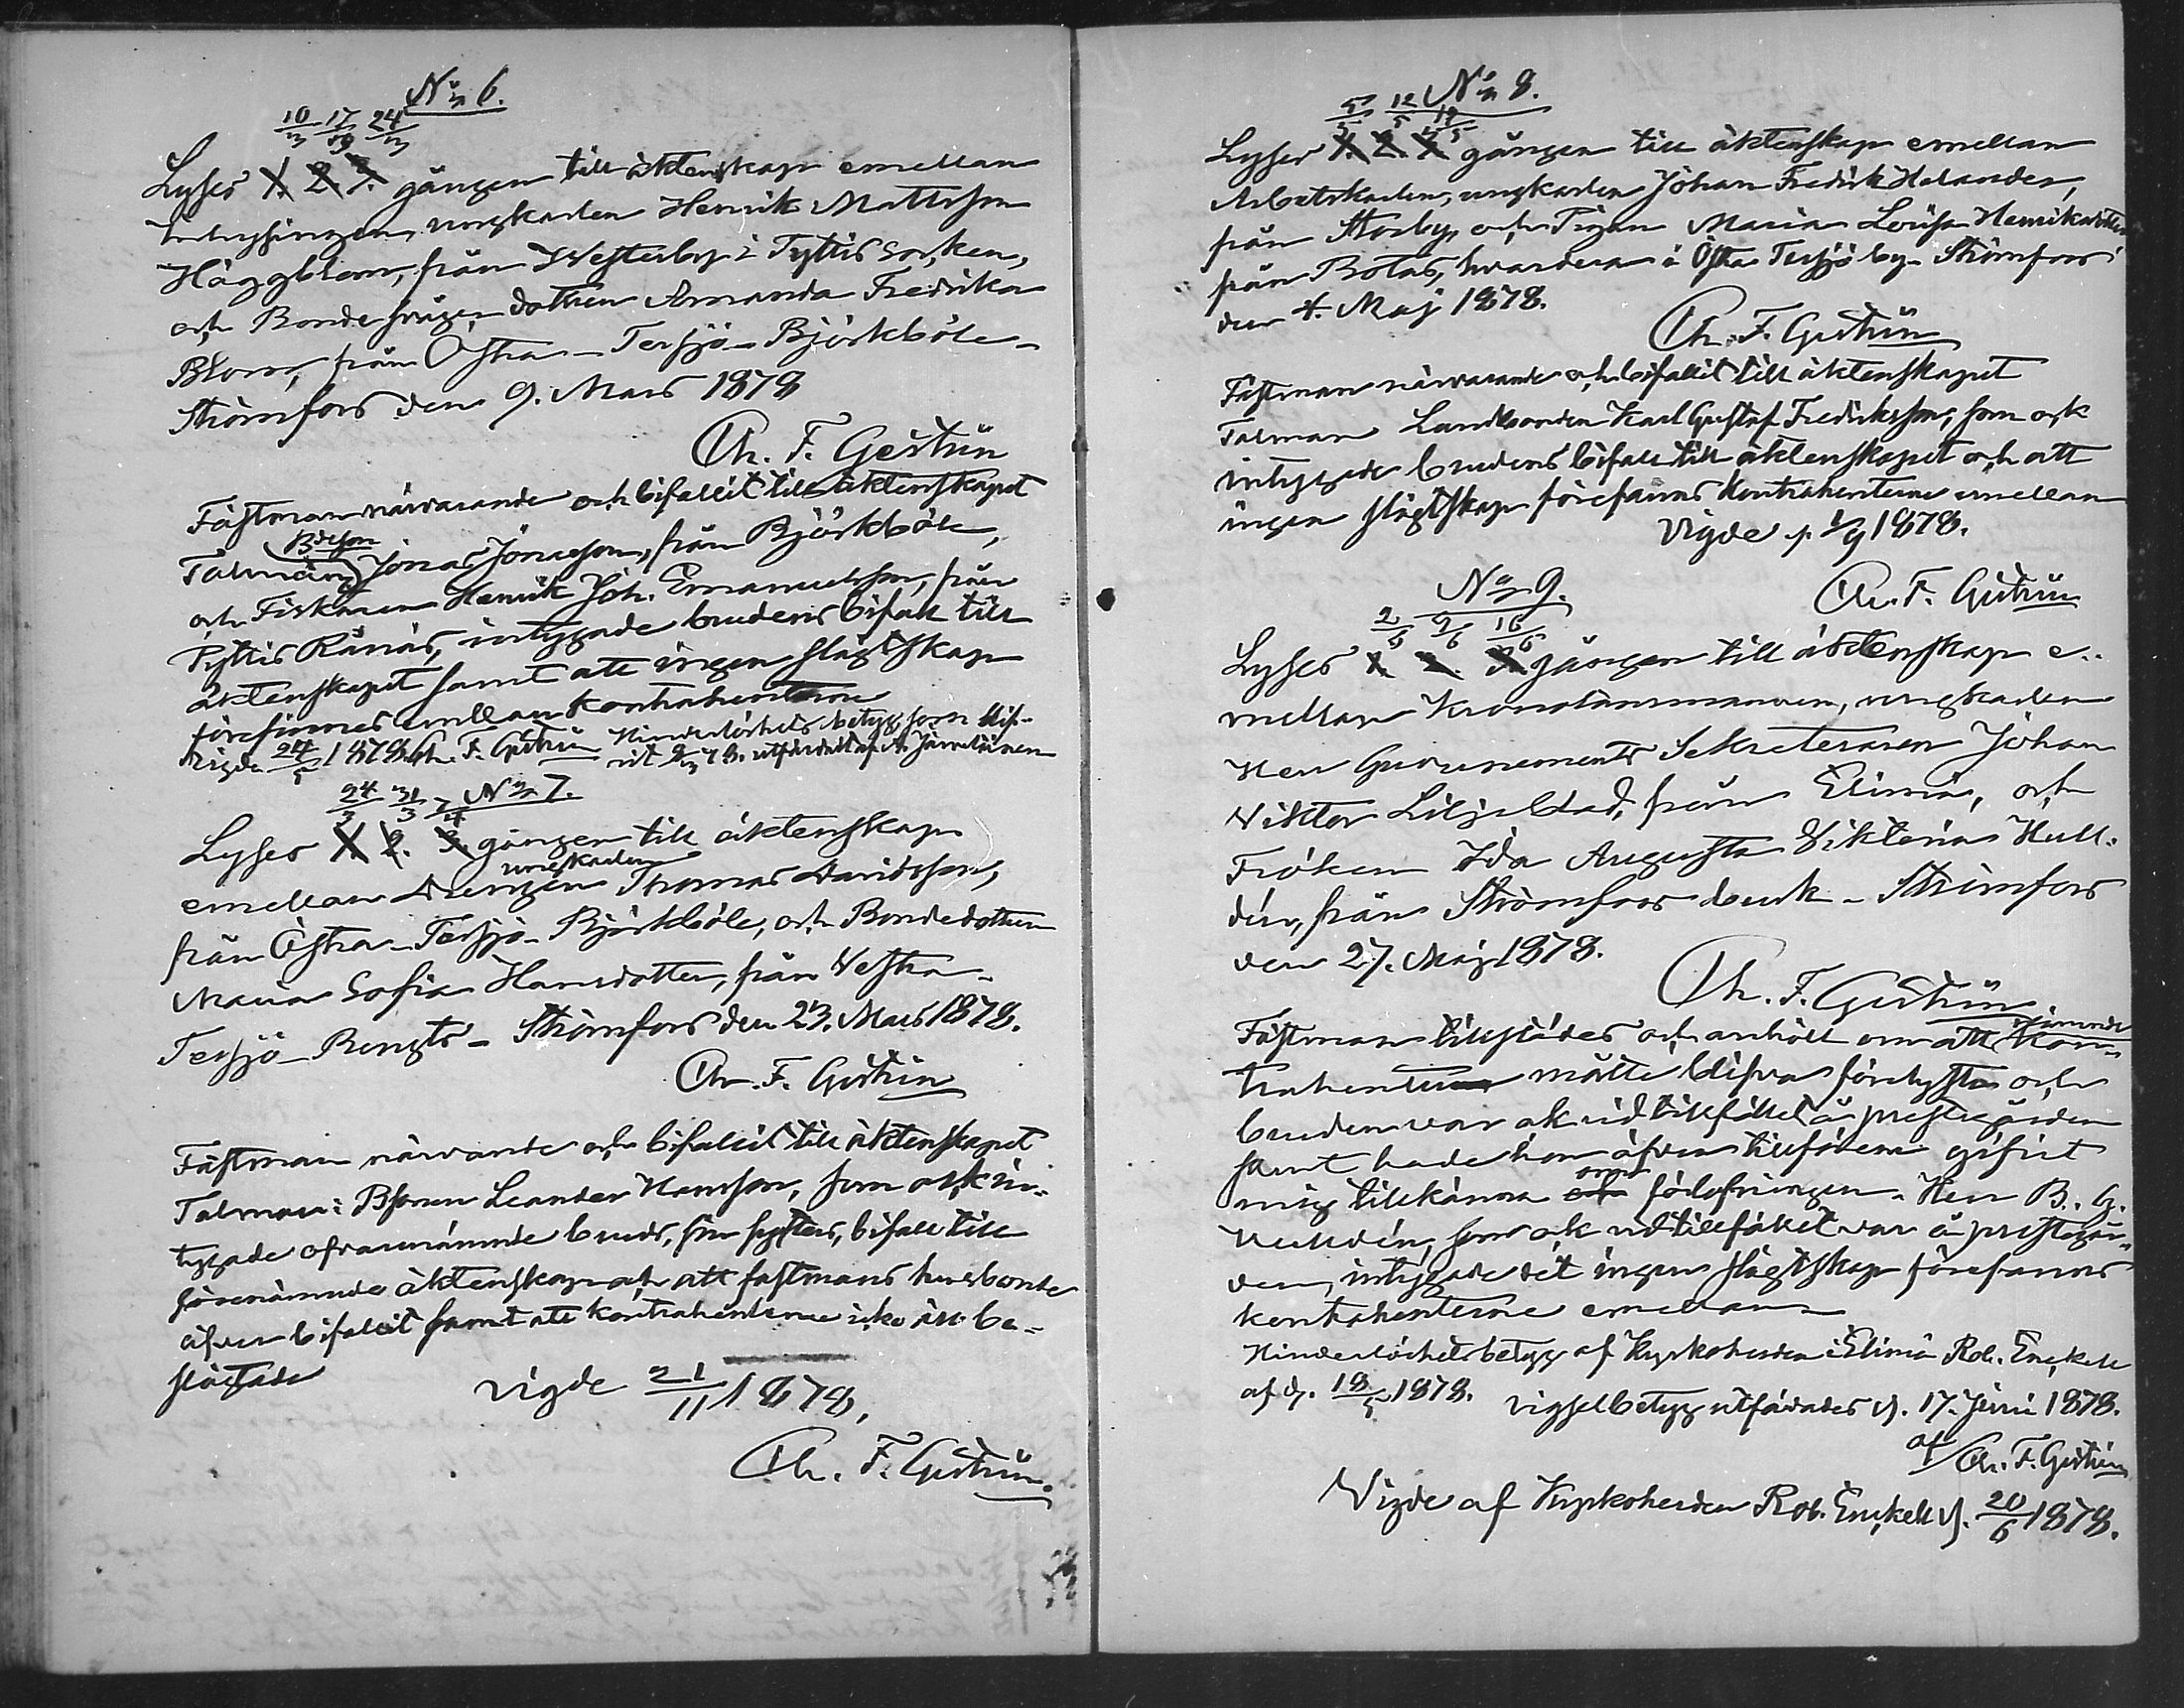 No 6.
10/3 17/3 24/3
Lyses 1. 2. 3. gången till äktenskap emellan
Inhysingen, ungkarlen Henrik Mattsson
Häggblom, från Westerby i Pyttis socken,
och Bonde dottren Amanda Fredrika
Blom, från Östra - Tersjö - Björkböle -
Strömfors den 9. Mars 1878
Ch. F. Geström
Fästman närvarande och bifallit till äktenskapet
Bdeson
Talmän Jonas Jonasson, från Björkböle,
och Fiskaren Henrik Joh. Emanuelsson, från
Pyttis Rånäs, intygade brudens bifall till
äktenskapet samt att ingen slägtskap
förefinnes emellan kontrahenterne
Vigde 24/5 1878 Ch. F. Geström Hinderlöshets betyg som blif-
vit 78. utfärdadt af
24/3 31/3 7/4 No 7.
Lyses 1. 2. 3. gången till äktenskap
ungkarlen
emellan Drengen Thomas Davidsson,
från Östra - Tersjö - Björkböle, och Bondedottren
Maria Sofia Hansdotter, från Vestra -
Tersjö - Bengts - Strömfors den 23. Mars 1878.
Ch. F. Geström
Fästman närvande och bifallit till äktenskapet
Talman: Bsonen Leander Hansson, som ock in-
tygade ofvannämnde bruds, sin systers, bifall till
förenämnde äktenskap och att fastmans husbonde
äfven bifallit samt att kontrahenterne icke äro be-
slägtade
Vigde 21/11 1878,
Ch. F. Geström.
No 8.
5/5 12/5 19/5
Lyses 1. 2. 3. gången till äktenskap emellan
Arbetskarlen, ungkarlen Johan Fredrik Helander,
från Storby, och Pigan Maria Lovisa Henriksdotter
från Botas, hvardera i Östra Tersjö by - Strömfors
den 4. Maj 1878.
Ch. F. Geström
Fästman närvarande och bifallit till äktenskapet
Talman Landbonden Karl Gustaf Fredriksson, som ock
intygade brudens bifall till äktenskapet och att
ingen slägtskap förefanns kontrahenterne emellan
Vigde d. 1/9 1878.
Ch. F. Geström
No 9.
2/6 9/6 16/6
Lyses 1. 2. 3. gången till äktenskap e-
mellan Kronolänsmannen, ungkarlen
Herr Guvernements Sekreteraren Johan
Viktor Liljeblad, från Elimä, och
Fröken Ida Augusta Viktoria Hull-
dén, från Strömfors bruk - Strömfors
den 27. Maj 1878.
Ch. F. Geström.
nämnde
Fästman tillstädes och anhöll om att kon-
trahenterne måtte blifva förelysta och
bruden var ock vid tillfället å prestgården
samt hade hon äfven tillförene gifvit
om
mig tillkänna och förlofningen. Herr B. G.
Hulldén, som ock vid tillfället var å prestgår-
den, intygade det ingen slägtskap förefanns
kontrahenterne emellan
Hinderlöshetsbetyg af Kyrkoherden i Elimä Rob. Enckell
af d. 18/5 1878. Vigselbetyg utfärdades d. 17. Juni 1878.
af Ch. F. Geström
Vigde af Kyrkoherden Rob. Enckell d. 20/6 1878.